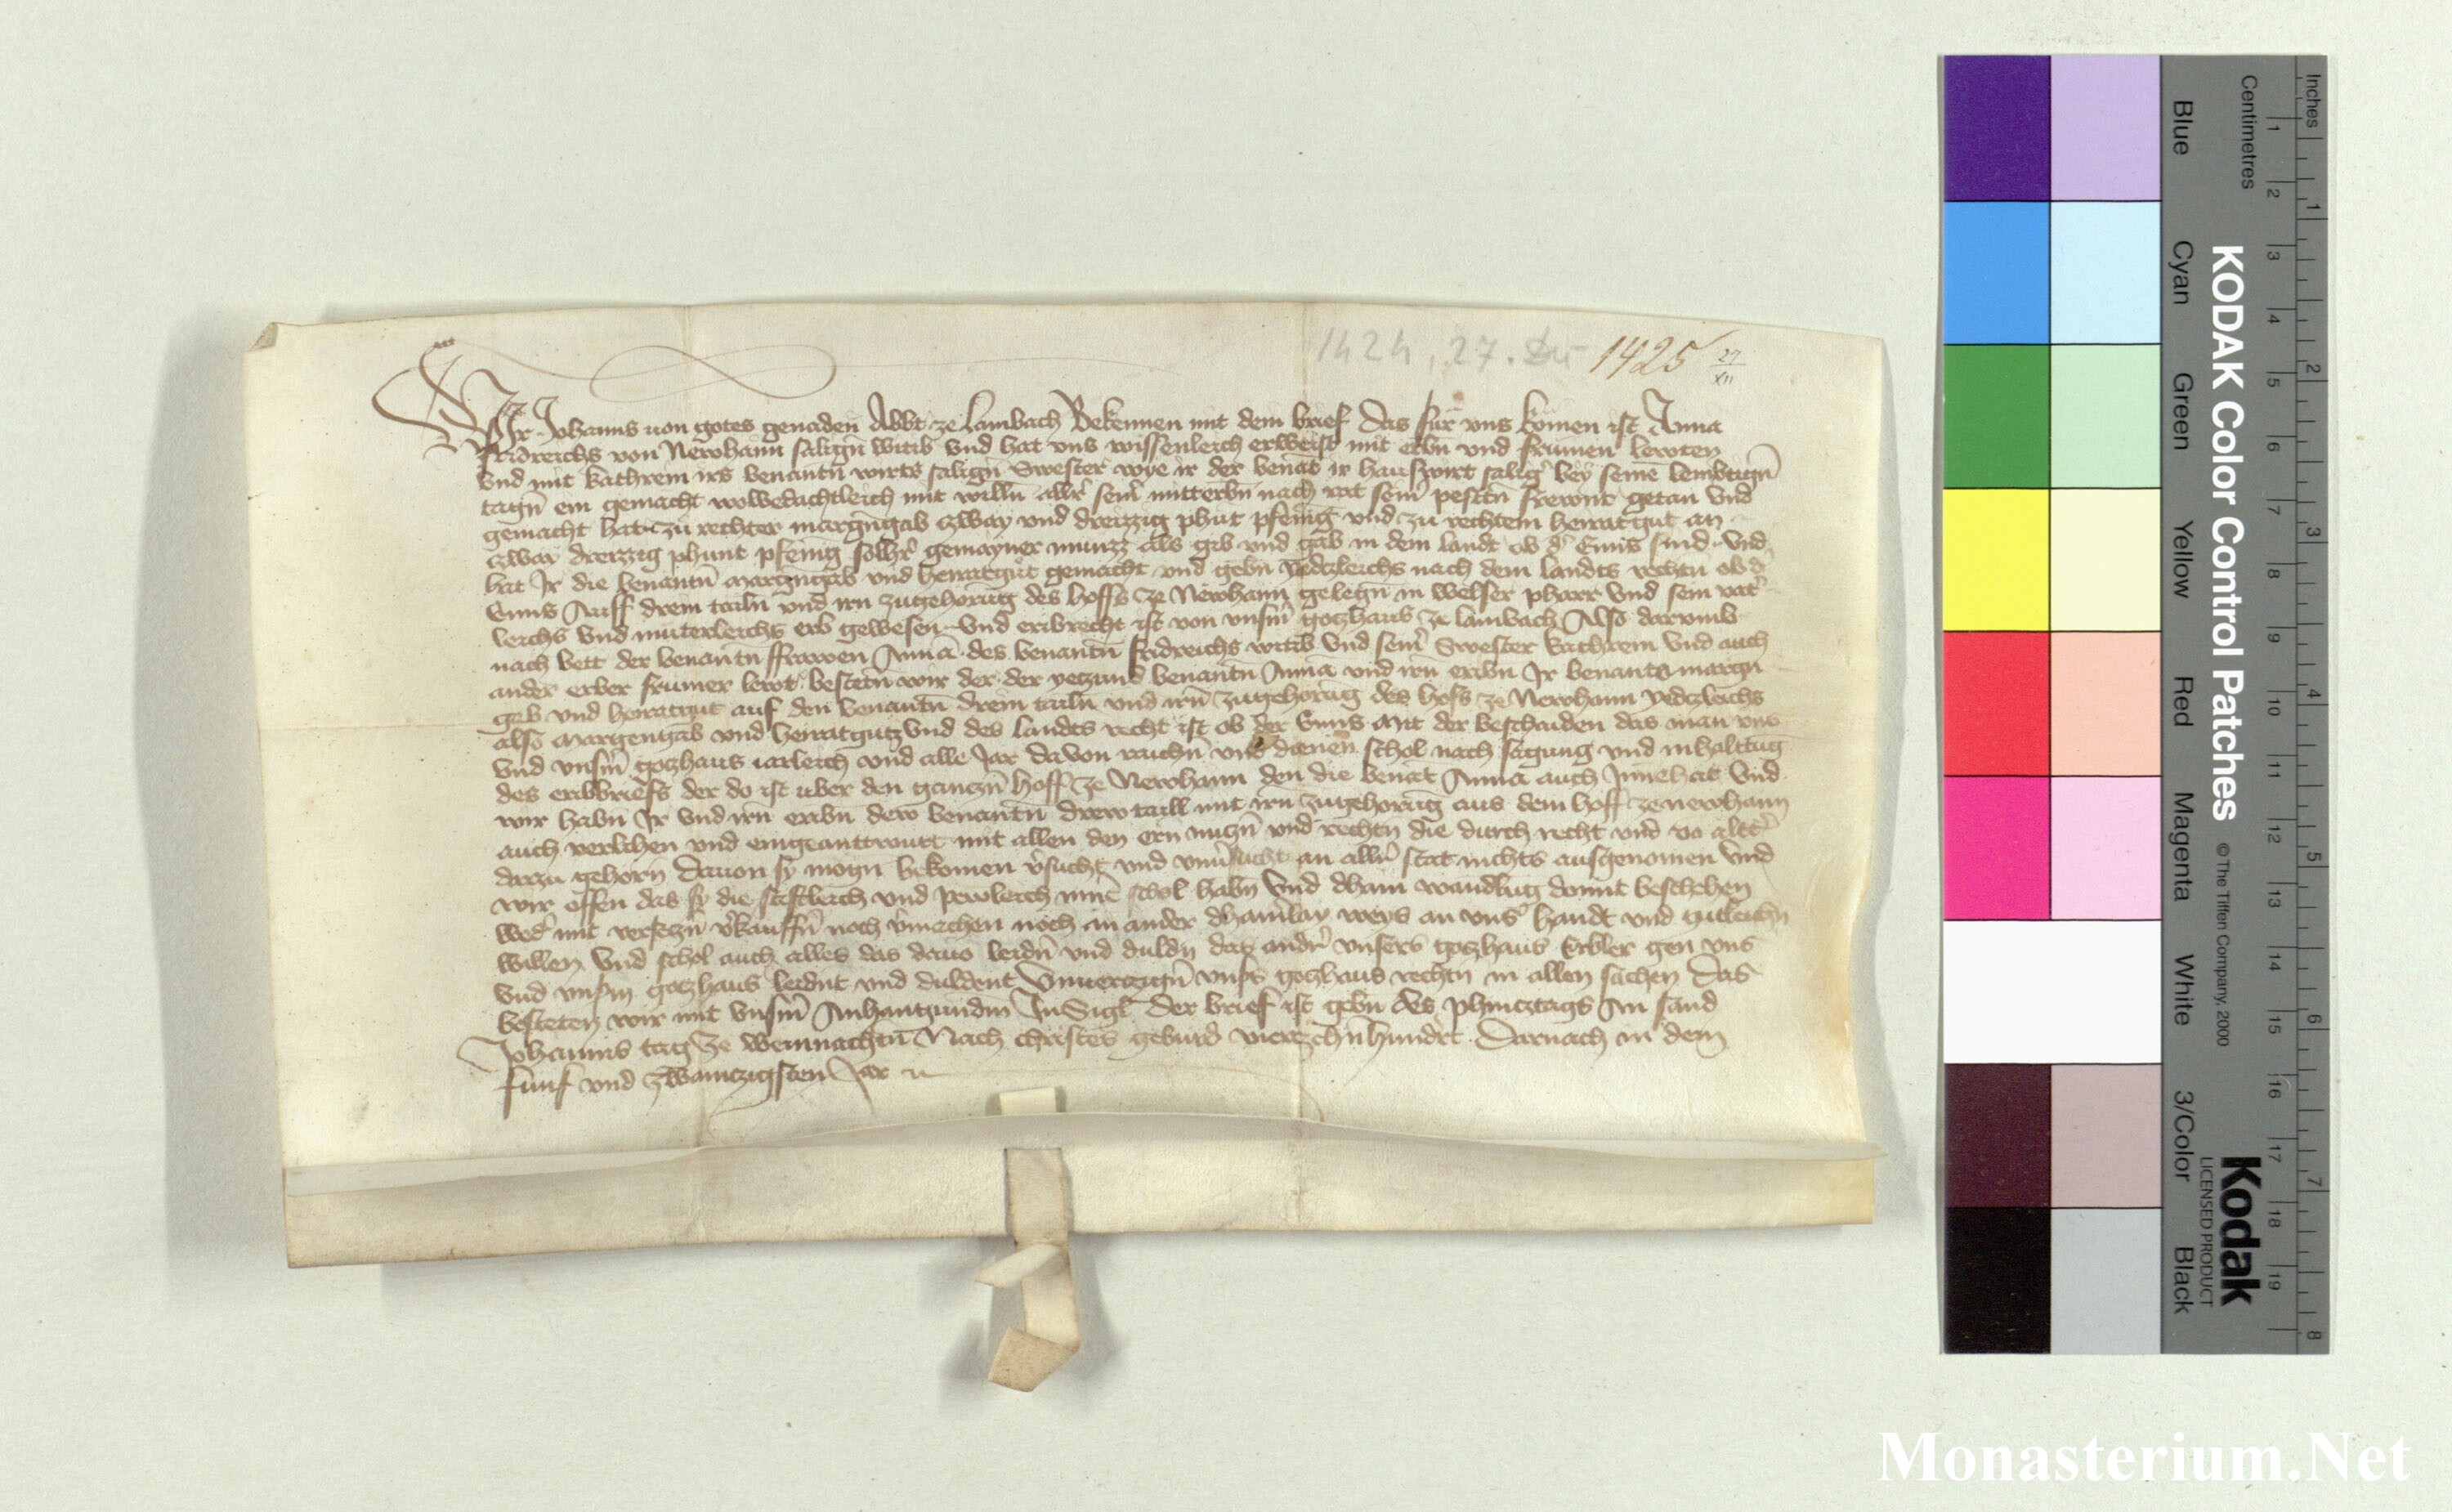 1424, 27. Dez 1425 27/XII
Wir Johanns von gotes genaden Abbt ze Lambach Bekennen mit dem brief Das für vns komen ist Anna
fridreichs von Newhaim saligñ witib vnd hat vns wissenleich erweist mit erbñ vnd frumen lewten
vnd mit kathrein irs benantñ wirts saligñ Swester wye ir der benāt ir hauswirt salig bey seinē lembtign̄
tagñ ein gemacht wolbedachtleich mit willñ allr̃ seinr̃ miterbñ nach rat seinr̃ pestñ frewnt getan vnd
gemacht hat zu rechter margñgab zway und dreizzig phūt pfeniġ vnd zu rechtem heiratgut an
zway dreizzig phunt pfeniġ solhr̃ gemayner munzz als gib vnd gab in dem landt ob dr̃ Enns sind vnd
hat Jr die benantñ margñgab vnd heiratgut gemacht vnd gebñ yedzleichs nach dem landts rechtñ ob dr̃
Enns Auff drein tailñ vnd irn zugehorūg des hoffs ze Newhaim gelegñ in welser pharr vnd sein vatr̃
leichs vnd muterleichs erb gewesen vnd eribrecht ist von vnsm̃ gotzhaus ze lambach Also darumb
nach bett der benantñ ffrawen Annā des benantñ fridreichs witib vnd seinr̃ Swester kathrein vnd auch
ander erber frumer lewt bestetñ wir der der yetzund benantñ Annā vnd irñ erbñ Jr benante margñ
gab vnd heiratgut auf den benantñ drein tailñ vnd irñ zugehorūg des hofs ze Newhaim yedzleichs
also margengab vnd heiratgutz vnd des landts recht ist ob der Enns mit der beschaiden das man vns
vnd vnsm̃ gotzhaus iarleich vnd alle Jar dauon raichñ vnd dienen schol nach sagung vnd inhaltūg
des eribbriefs der do ist uber den ganczñ hoff ze Newhaim den die benāt Annā auch Innehat vnd
wir habñ Jr vnd irñ eribñ dew benantñ drew taill mit irn zugehorūg aus dem hoff ze newhaim
auch verlihen vnd eingeantwurt mit allen den ern nuczñ vnd rechtñ die durch recht vnd vō altr̃
darzu gehorñ dauon sy mogñ bekomen v̾sucht vnd vnu̾sucht an allr̃ stat nichts ausgenomen vnd
wir offen das sy die stiftleich vnd pewleich inne schol habñ vnd dhain wandlūg domit beschehen
wedr̃ mit versetzñ v̾kauffñ noch v̾machen noch in ander dhainlay weys an vnsr̃ handt vnd gutleichñ
willen vnd schol auch alles das dauō leidñ vnd duldñ daz andr̃ vnsers gotzhaus Eribler gen vns
vnd vnsm̃ gotzhaus leident vnd duldent Vnuerczign̄ vnsrs gotzhaus rechtñ in allen sachen Das
besteten wir mit vnsm̃ Anhangundm̃ InSigl Der brief ist gebñ des phincztags An sand
Johanns tag ze weinnachtñ Nach christes geburd vierzehñhundrt Darnach in dem
fünf vnd zwainczigsten Jar
Inches
Centimetres
1 2 3 4 5 6 7 8 9 10 11 12 13 14 15 16 17 18 19
1 2 3 4 5 6 7 8
KODAK Color Control Patches © The Tiffen Company, 2000
Kodak
LICENSED PRODUCT
Blue Cyan Green Yellow Red Magenta White 3/Color Black
Monasterium.Net